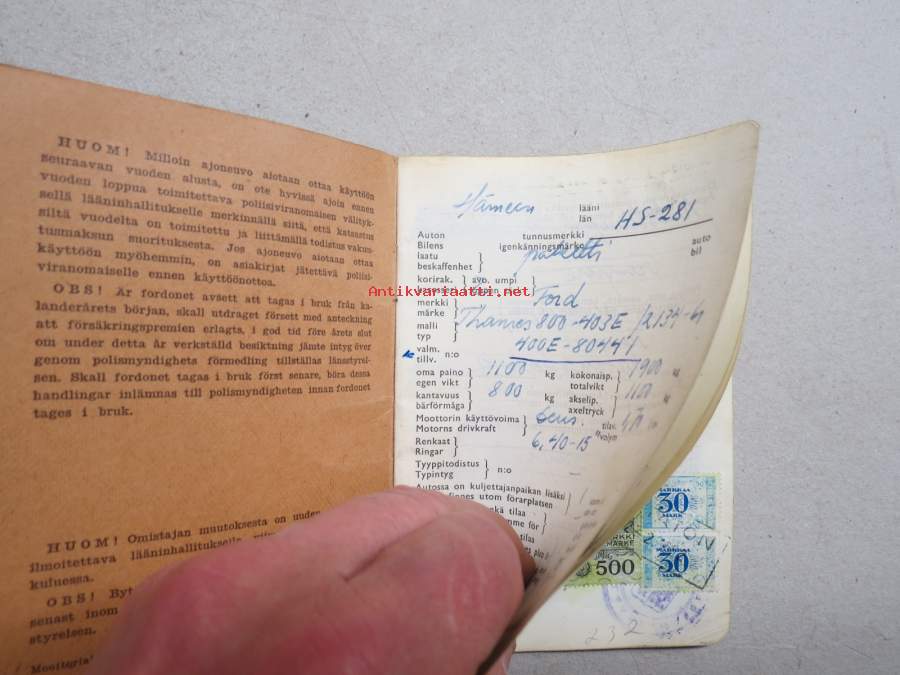 HUOM! Milloin ajoneuvo aiotaan ottaa käyttöön
seuraavan vuoden alusta, on ote hyvissä ajoin ennen
vuoden loppua toimitettava poliisiviranomaisen välityk-
sellä lääninhallitukselle merkinnällä siitä, että katsastus
siltä vuodelta on toimitettu ja liittämällä todistus vakuu-
tusmaksun suorituksesta. Jos ajoneuvo aiotaan ottaa
käyttöön myöhemmin, on asiakirjat jätettävä poliisi-
viranomaiselle ennen käyttöönottoa.
OBS! Är fordonet avsett att tagas i bruk från ka-
landerårets början, skall utdraget försett med anteckning
om under detta år verkställd besiktning jämte intyg över
att försäkringspremien erlagts, i god tid före årets slut
genom polismyndighets förmedling tillställas länsstyrel-
sen. Skall fordonet tagas i bruk först senare, böra dessa
handlingar inlämnas till polismyndigheten innan fordonet
tages i bruk.
HUOM! Omistajan muutoksesta on uuden
ilmoitettava lääninhallitukselle
kuluessa.
OBS!
senast inom
styrelsen.
Hämeen lääni
län
HS-281
Auton tunnusmerkki
Bilens igenkänningsmärke
auto
bil
laatu
beskaffenhet
korirak. avo, umpi
Antikvariaatti.net
merkki
märke
Ford
malli
typ
Thames 800-403E
valm.
tillv. n:o
400E-80441
oma paino
egen vikt
1100 kg
kokonaisp.
totalvikt
1900
kantavuus
bärförmåga
800 kg
akselip.
axeltryck
1100
Moottorin käyttövoima
Motorns drivkraft
tilav.
volym
Renkaat
Ringar
6,40-15
Tyyppitodistus
Typintyg n:o
Autossa on kuljettajanpaikan lisäksi
finnes utom förarplatsen
tilaa
500
MARKKAA
30
MARK
MARKKAA
30
MARK
232